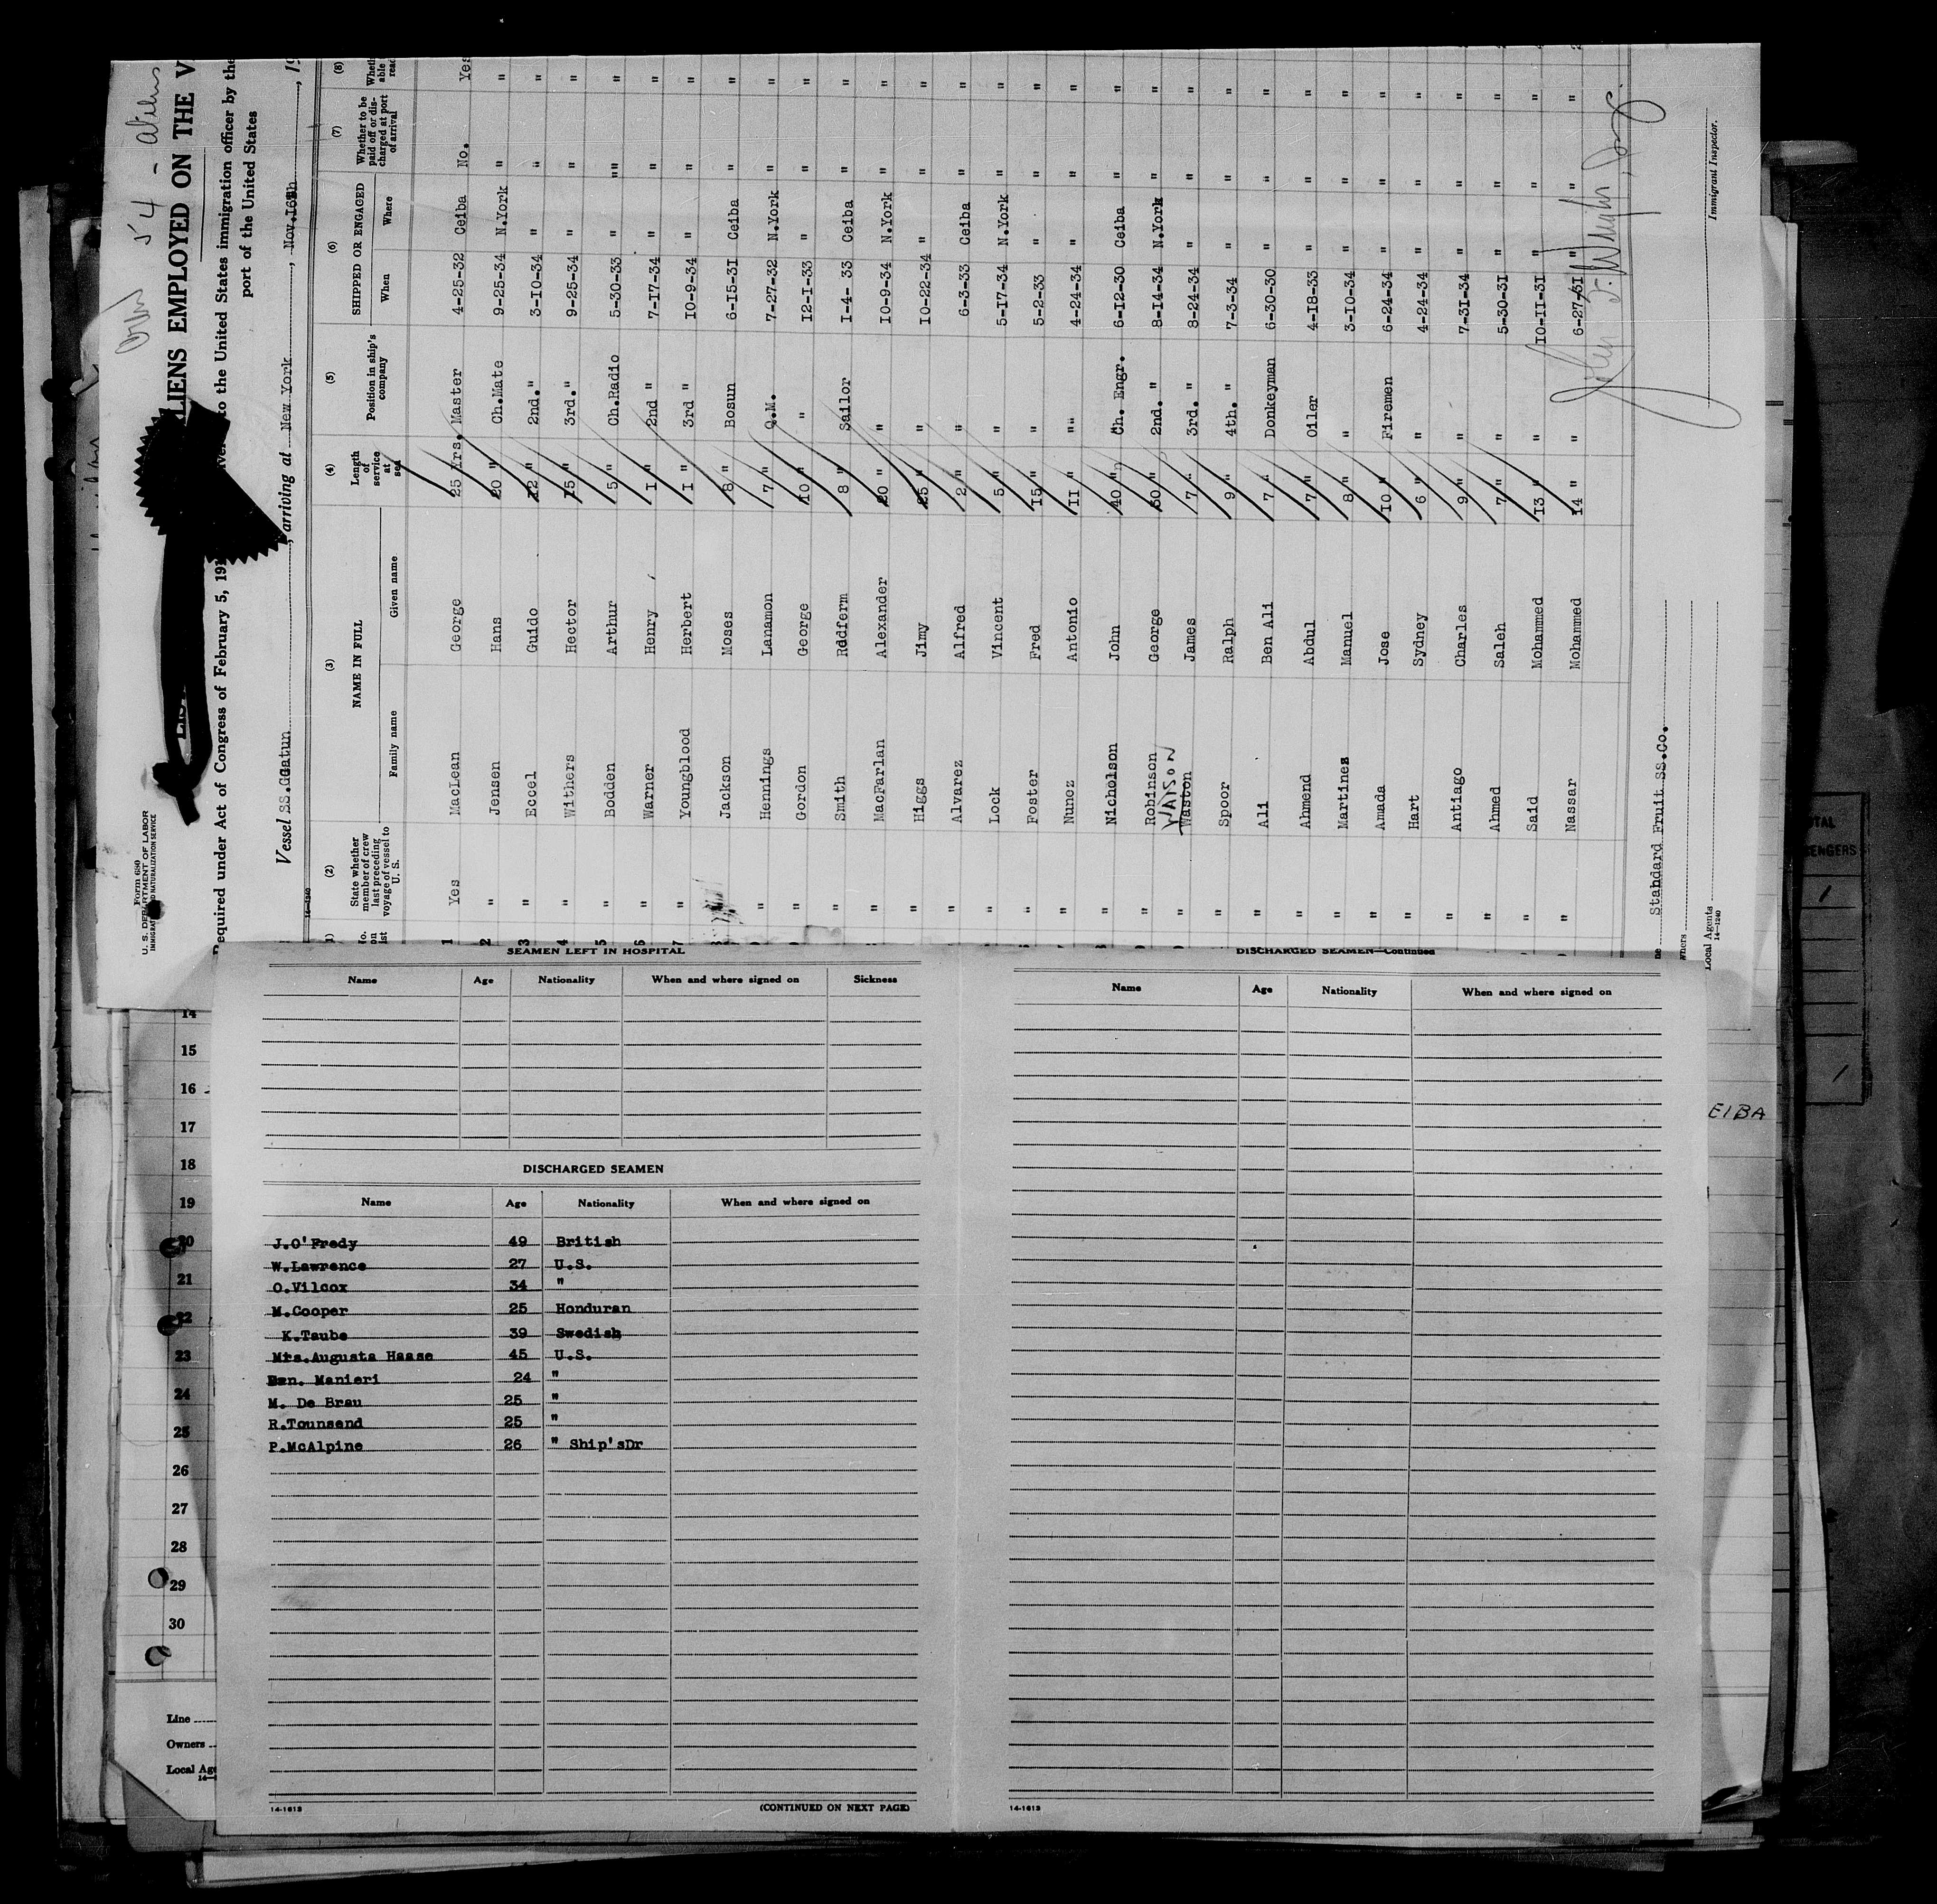 Form 680
U. S. DEPARTMENT OF LABOR
IMMIGRATION AND NATURALIZATION SERVICE
54 - aliens
LIENS EMPLOYED ON THE V
Required under Act of Congress of February 5, 191
to the United States immigration officer by the
port of the United States
Vessel SS. Gatun, arriving at New York, Nov. 16th, 19
14-1240
(2) (3) (4) (5) (6) (7) (8)
State whether member of crew last preceding voyage of vessel to U. S. NAME IN FULL Length of service at sea Position in ship's company SHIPPED OR ENGAGED Whether to be paid off or discharged at port of arrival
Family name Given name When Where
1 Yes MacLean George 25 Yrs. Master 4-25-32 Ceiba No. Yes
2 " Jensen Hans 20 " Ch.Mate 9-25-34 N.York " "
3 " Eccel Guido 12 " 2nd. " 3-10-34 " " "
4 " Withers Hector 15 " 3rd. " 9-25-34 " " "
5 " Bodden Arthur 5 " Ch.Radio 5-30-33 " " "
6 " Warner Henry 1 " 2nd " 7-17-34 " " "
7 " Youngblood Herbert 1 " 3rd " 10-9-34 " " "
8 " Jackson Moses 8 " Bosun 6-15-31 Ceiba " "
" Hennings Lanamon 7 " Q.M. 7-27-32 N.York " "
" Gordon George 10 " " 12-1-33 " " "
" Smith Rddferm 8 " Sailor 1-4- 33 Ceiba " "
" MacFarlan Alexander 20 " " 10-9-34 N.York " "
" Higgs Jimy 25 " " 10-22-34 " " "
" Alvarez Alfred 2 " " 6-3-33 Ceiba " "
" Lock Vincent 5 " " 5-17-34 N.York " "
" Foster Fred 15 " " 5-2-33 " " "
" Nunez Antonio 11 " " 4-24-34 " " "
" Nicholson John 40 " Ch. Engr. 6-12-30 Ceiba " "
" Robinson George 30 " 2nd. " 8-14-34 N.York " "
WATSON
" Waston James 7 " 3rd. " 8-24-34 " " "
" Spoor Ralph 9 " 4th. " 7-3-34 " " "
" Ali Ben Ali 7 " Donkeyman 6-30-30 " " "
" Ahmend Abdul 7 " Oiler 4-18-33 " " "
" Martinez Manuel 8 " " 3-10-34 " " "
" Amada Jose 10 " Firemen 6-24-34 " " "
" Hart Sydney 6 " " 4-24-34 " " "
" Antiago Charles 9 " " 7-31-34 " " "
" Ahmed Saleh 7 " " 5-30-31 " " "
" Said Mohammed 13 " " 10-11-31 " " "
" Nassar Mohammed 14 " " 6-27-31 " " "
Standard Fruit SS.Co.
Local Agents
14-1240
Immigrant Inspector.
SEAMEN LEFT IN HOSPITAL
Name Age Nationality When and where signed on Sickness
DISCHARGED SEAMEN
Name Age Nationality When and where signed on
J.O'Fredy 49 British
W.Lawrence 27 U.S.
O.Vilcox 34 "
M.Cooper 25 Honduran
K.Taube 39 Swedish
Mrs.Augusta Haase 45 U.S.
Manieri 24 "
M. De Brau 25 "
R.Tounsend 25 "
P.McAlpine 26 " Ship'sDr
14-1613
(CONTINUED ON NEXT PAGE)
DISCHARGED SEAMEN—Continued
Name Age Nationality When and where signed on
14-1613
14
15
16
17
18
19
20
21
22
23
24
25
26
27
28
29
30
Line
Owners
Local Age
EIBA
TAL
ENGERS
1
1